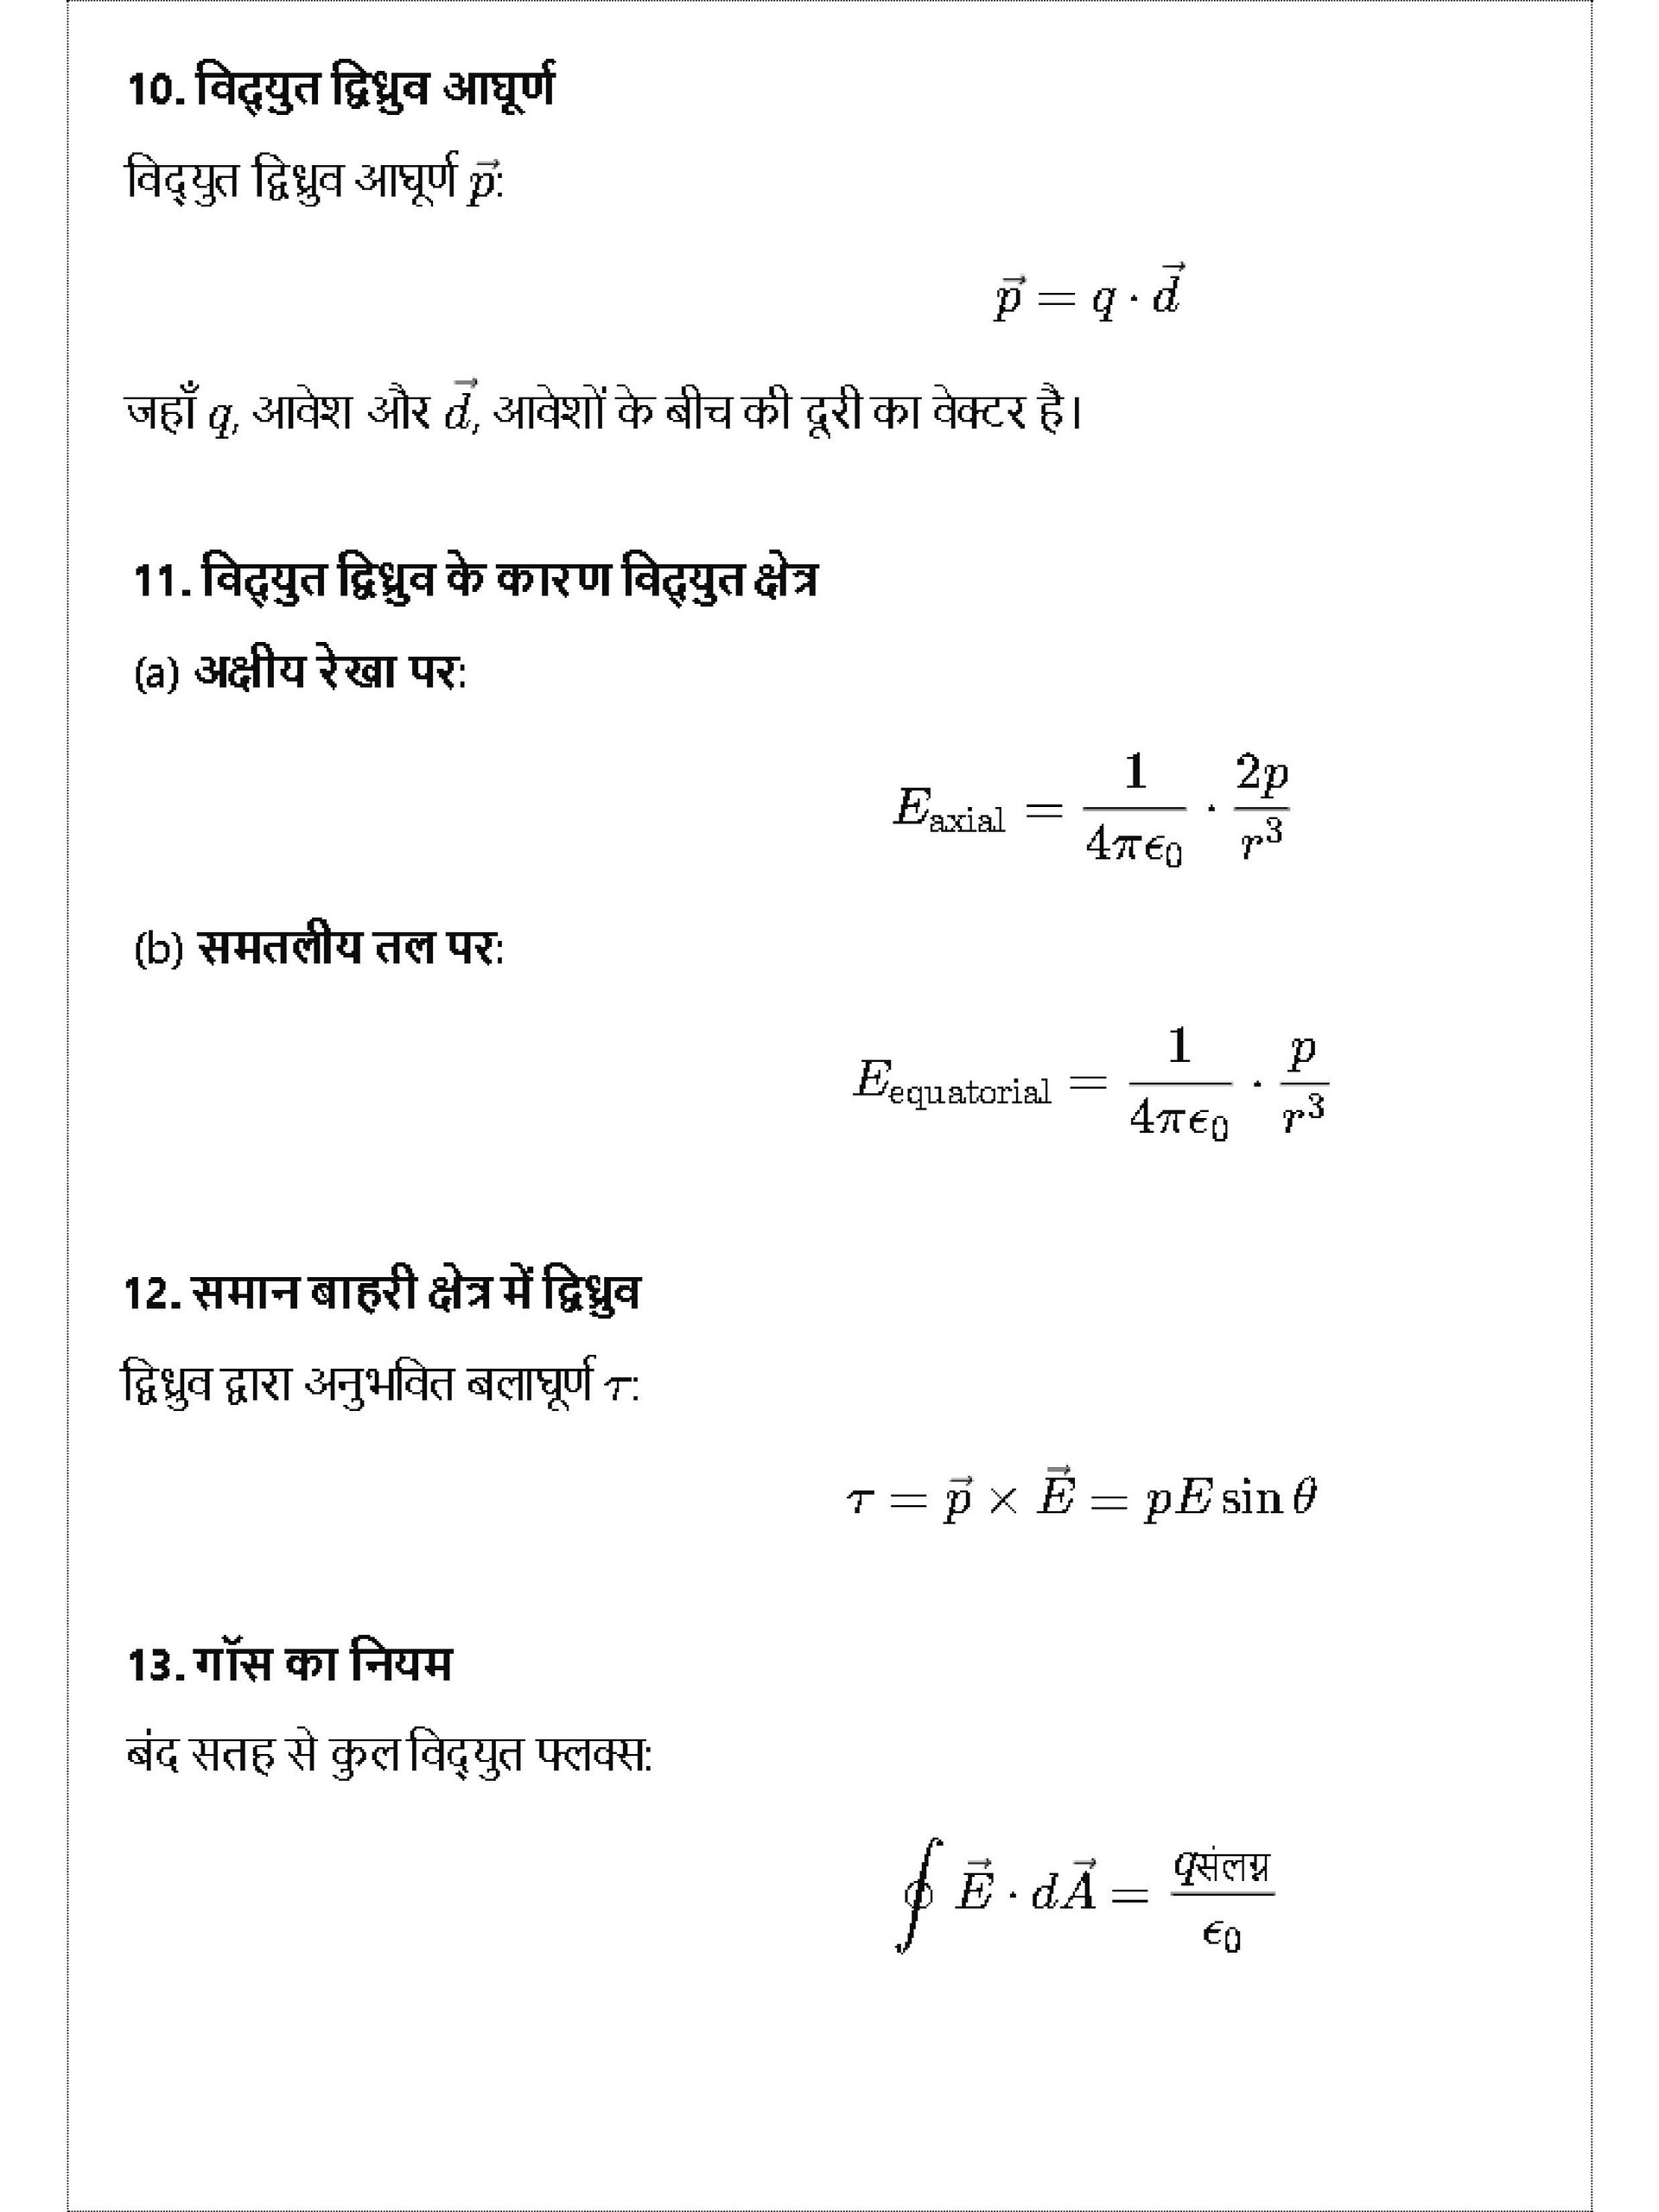 10. विद्युत द्विध्रुव आघूर्ण
विद्युत द्विध्रुव आघूर्ण $\vec{p}$:
$\vec{p} = q \cdot \vec{d}$
जहाँ $q$, आवेश और $\vec{d}$, आवेशों के बीच की दूरी का वेक्टर है।
11. विद्युत द्विध्रुव के कारण विद्युत क्षेत्र
(a) अक्षीय रेखा पर:
$E_{\text{axial}} = \frac{1}{4\pi\epsilon_0} \cdot \frac{2p}{r^3}$
(b) समतलीय तल पर:
$E_{\text{equatorial}} = \frac{1}{4\pi\epsilon_0} \cdot \frac{p}{r^3}$
12. समान बाहरी क्षेत्र में द्विध्रुव
द्विध्रुव द्वारा अनुभवित बलाघूर्ण $\tau$:
$\tau = \vec{p} \times \vec{E} = pE \sin\theta$
13. गॉस का नियम
बंद सतह से कुल विद्युत फ्लक्स:
$\oint \vec{E} \cdot d\vec{A} = \frac{q_{\text{संलग्न}}}{\epsilon_0}$